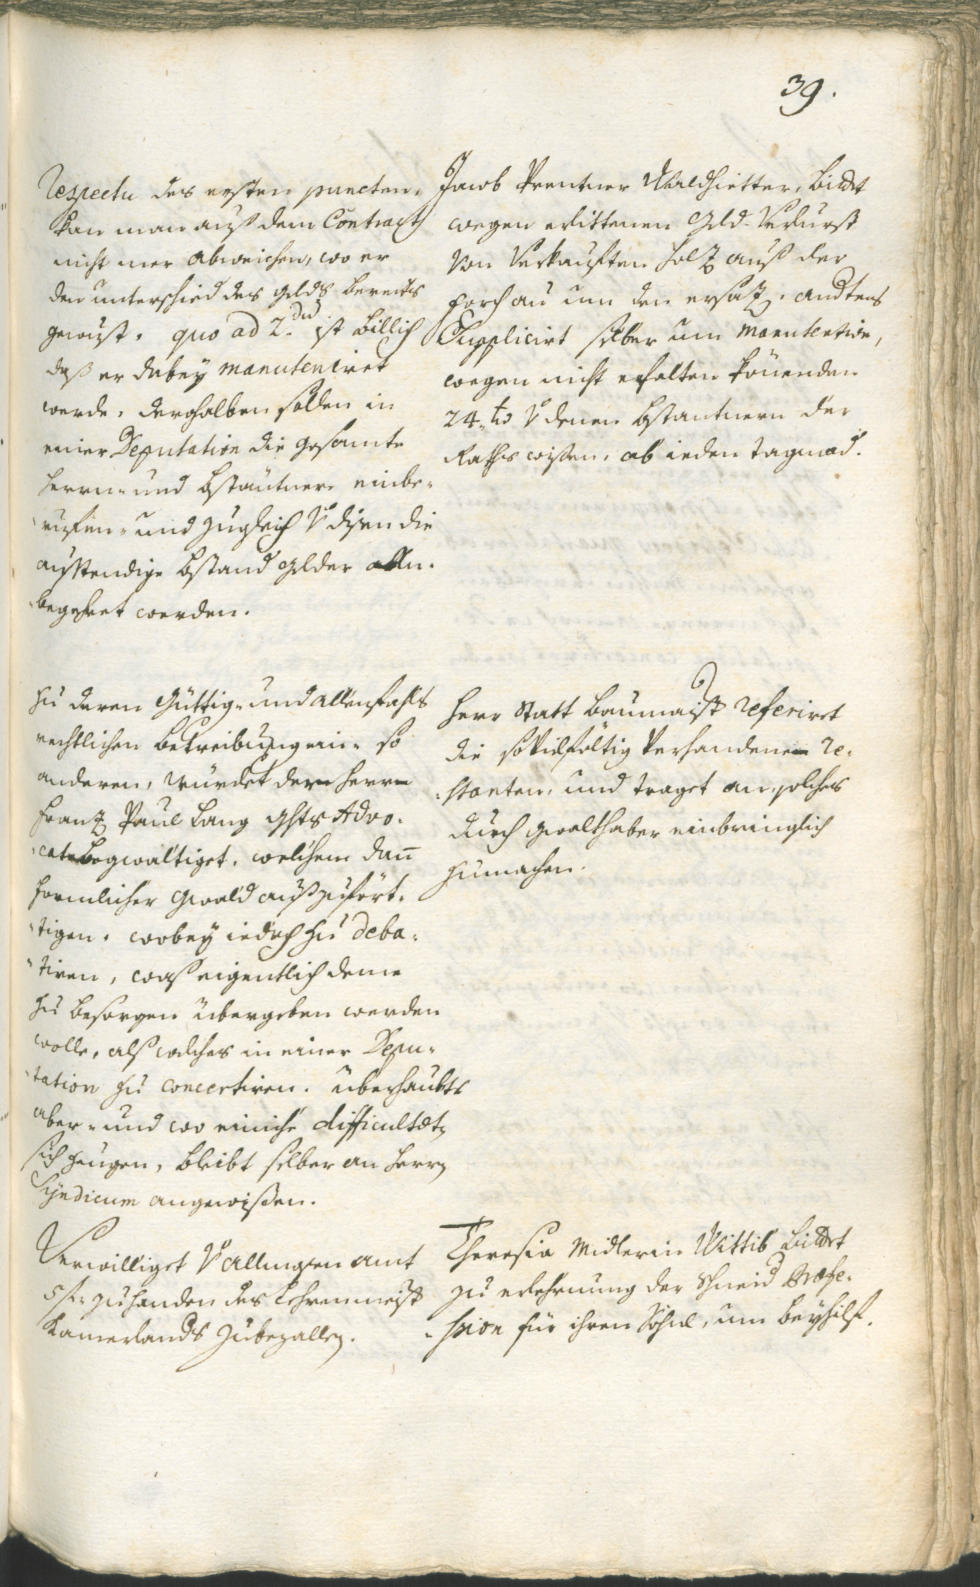 39.
Respectu des ersten puncten
kan man auß dem Contract
nicht mer abweichen, wo er
den unterschid des gelds bereits
gewust. quo ad 2.dum ist billich
daß er dabey manuteniret
werde, derohalben sollen in
einer Deputation die gesamte
herrn- und bständtnere einbe-
ruffen- und zugleich v disen die
außstendige bstand gelder
begehret werden.
Jacob Prentner Waldhietter, bittet
wegen erlittenen Geld Verlurst
von verkaufften holz auß der
forchau um den ersaz. andtens
Supplicirt selber um manutention,
wegen nicht erhalten könenden
24 v denen bstantnern der
Raths wisen, ab ieden tagmad.
zu deren Güttig- und allenfahls
rechtlichen betreibung ein- so
anderen, würdet dem herrn
Franz Paul Lang Ghts Advo-
caten begwältiget, welchem dan
formlicher Gwald außzufört-
tigen. wobey iedoch zu deba-
tiren, waß eigentlich deme
zu besorgen übergeben werden
wolle, als welches in einer Depu-
tation zu concertiren. überhaubts
aber- und wo einiche difficultet
sich zeugen, bleibt selber an herrn
Syndicum angewisen.
Herr Statt Baumaist referiret
die so vilfältig verhandenen Re-
stanten, und traget an, solches
durch gwalthaber einbringlich
zumachen.
Verwilliget v Allmusen amt
5 f. zuhanden des Lehrenmeist
Kamerlands zubezallen.
Theresia Midlerin Wittib bittet
zu erlehrnung der Schneid Profe-
ssion für ihren Sohn, um beyhilf.